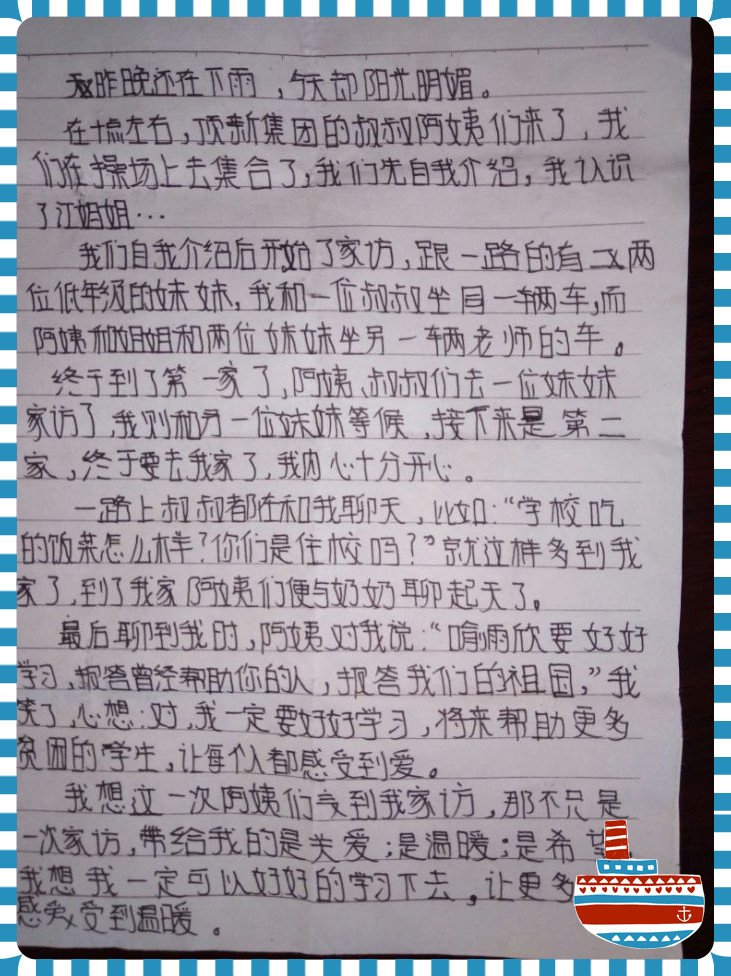 昨晚还在下雨，今天却阳光明媚。
在十点左右，顶新集团的叔叔阿姨们来了，我
们在操场上去集合了，我们先自我介绍，我认识
了江姐姐…
我们自我介绍后开始了家访，跟一路的有两
位低年级的妹妹，我和一位叔叔坐目一辆车，而
阿姨和姐姐和两位妹妹坐另一辆老师的车。
终于到了第一家了，阿姨、叔叔们去一位妹妹
家访了，我则和另一位妹妹等候，接下来是第二
家，终于要去我家了，我内心十分开心。
一路上叔叔都在和我聊天，比如：“学校吃
的饭菜怎么样？你们是住校吗？”就这样多到我
家了，到了我家阿姨们便与奶奶聊起天了。
最后聊到我时，阿姨对我说：“喻雨欣要好好
学习，报答曾经帮助你的人，报答我们的祖国，”我
笑了，心想：对，我一定要好好学习，将来帮助更多
贫困的学生，让每个人都感受到爱。
我想这一次阿姨们来到我家访，那不只是
一次家访，带给我的是关爱；是温暖；是希望
我想我一定可以好好的学习下去，让更多
感受到温暖。